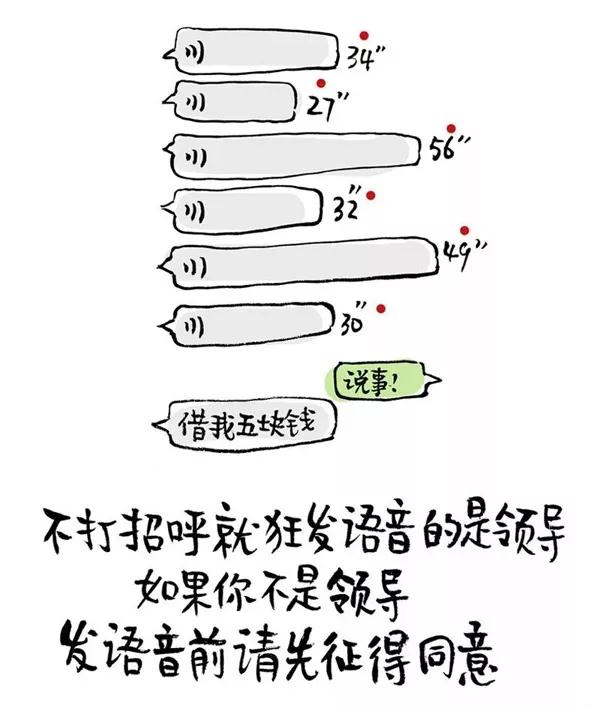 34"
27"
56"
32"
49"
30"
说事!
借我五块钱
不打招呼就狂发语音的是领导
如果你不是领导
发语音前请先征得同意